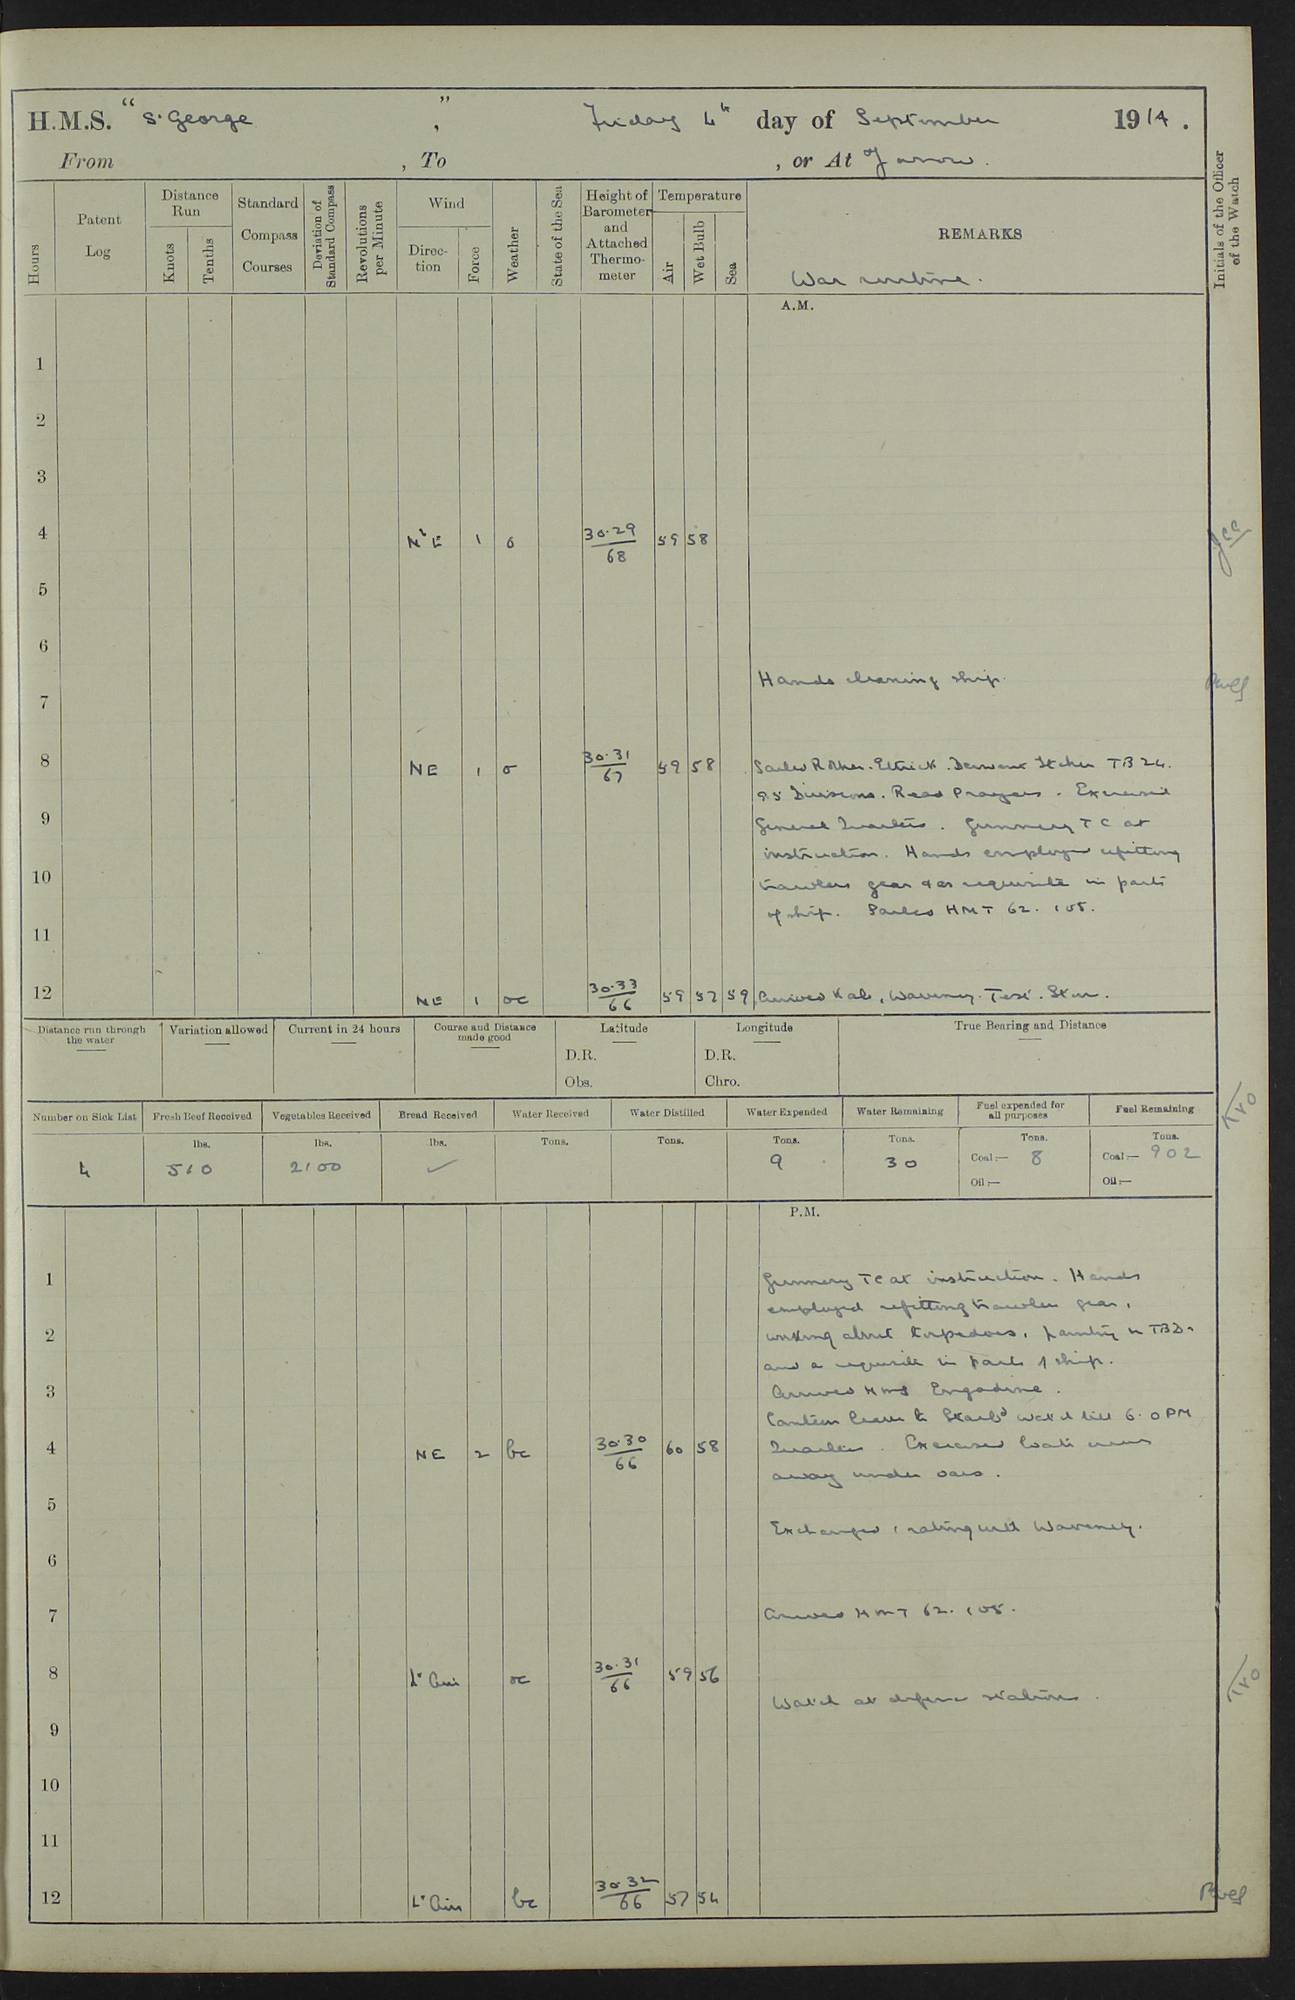 H.M.S. “ St George ” , Friday 4th day of September 1914 .
From , To , or At Jarrow .
Hours
Patent Log
Distance Run
Knots
Tenths
Standard Compass Courses
Deviation of Standard Compass
Revolutions per Minute
Wind
Direction
Force
Weather
State of the Sea
Height of Barometer and Attached Thermometer
Temperature
Air
Wet Bulb
Sea
REMARKS
War routine .
Initials of the Officer of the Watch
A.M.
1
2
3
4 N'E 1 o 30.29/68 59 58
5
6
Hands cleaning ship.
7
8 NE 1 o 30.31/67 59 58 Sailed Rother. Ettrick. Derwent Itchen TB 24.
9.5 Divisions. Read Prayers. Exercised
9 General Quarters. Gunnery T C at
instruction. Hands employed refitting
10 trawlers gear & as requisite in parts
of ship. Sailed HMT 62. 105.
11
12 NE 1 oc 30.33/66 59 57 59 Arrived Kale, Waveney. Test. Stour.
Distance run through the water
Variation allowed
Current in 24 hours
Course and Distance made good
Latitude
D.R.
Obs.
Longitude
D.R.
Chro.
True Bearing and Distance
Number on Sick List
Fresh Beef Received
Vegetables Received
Bread Received
Water Received
Water Distilled
Water Expended
Water Remaining
Fuel expended for all purposes
Fuel Remaining
lbs. lbs. lbs. Tons. Tons. Tons. Tons. Tons. Tons.
4 510 2100 ✓ 9 30 Coal:— 8 Coal:— 902
Oil:— Oil:—
P.M.
1 Gunnery TC at instruction. Hands
employed refitting trawler gear,
2 working about torpedoes, painting in TBDs
and as requisite in parts of ship.
3 Arrived HMS Engadine.
Canteen leave to Starbd watch till 6.0 PM
4 NE 2 bc 30.30/66 60 58 Quarters. Exercised boats crews
away under oars.
5
Exchanged 1 rating with Waveney.
6
7 Arrived HMT 62. 105.
8 Lt Airs oc 30.31/66 59 56
Watch at defence stations.
9
10
11
12 Lt Airs bc 30.32/66 57 54